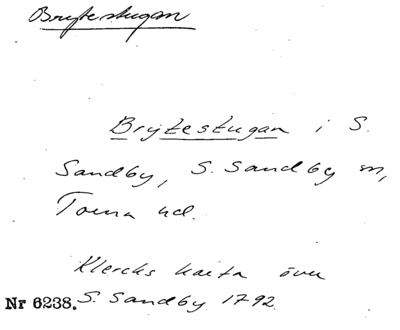 Brytestugan
Brytestugan i S.
Sandby, S. Sandby sn,
Torna hd.
Klercks karta över
Nr 6238. S. Sandby 1792